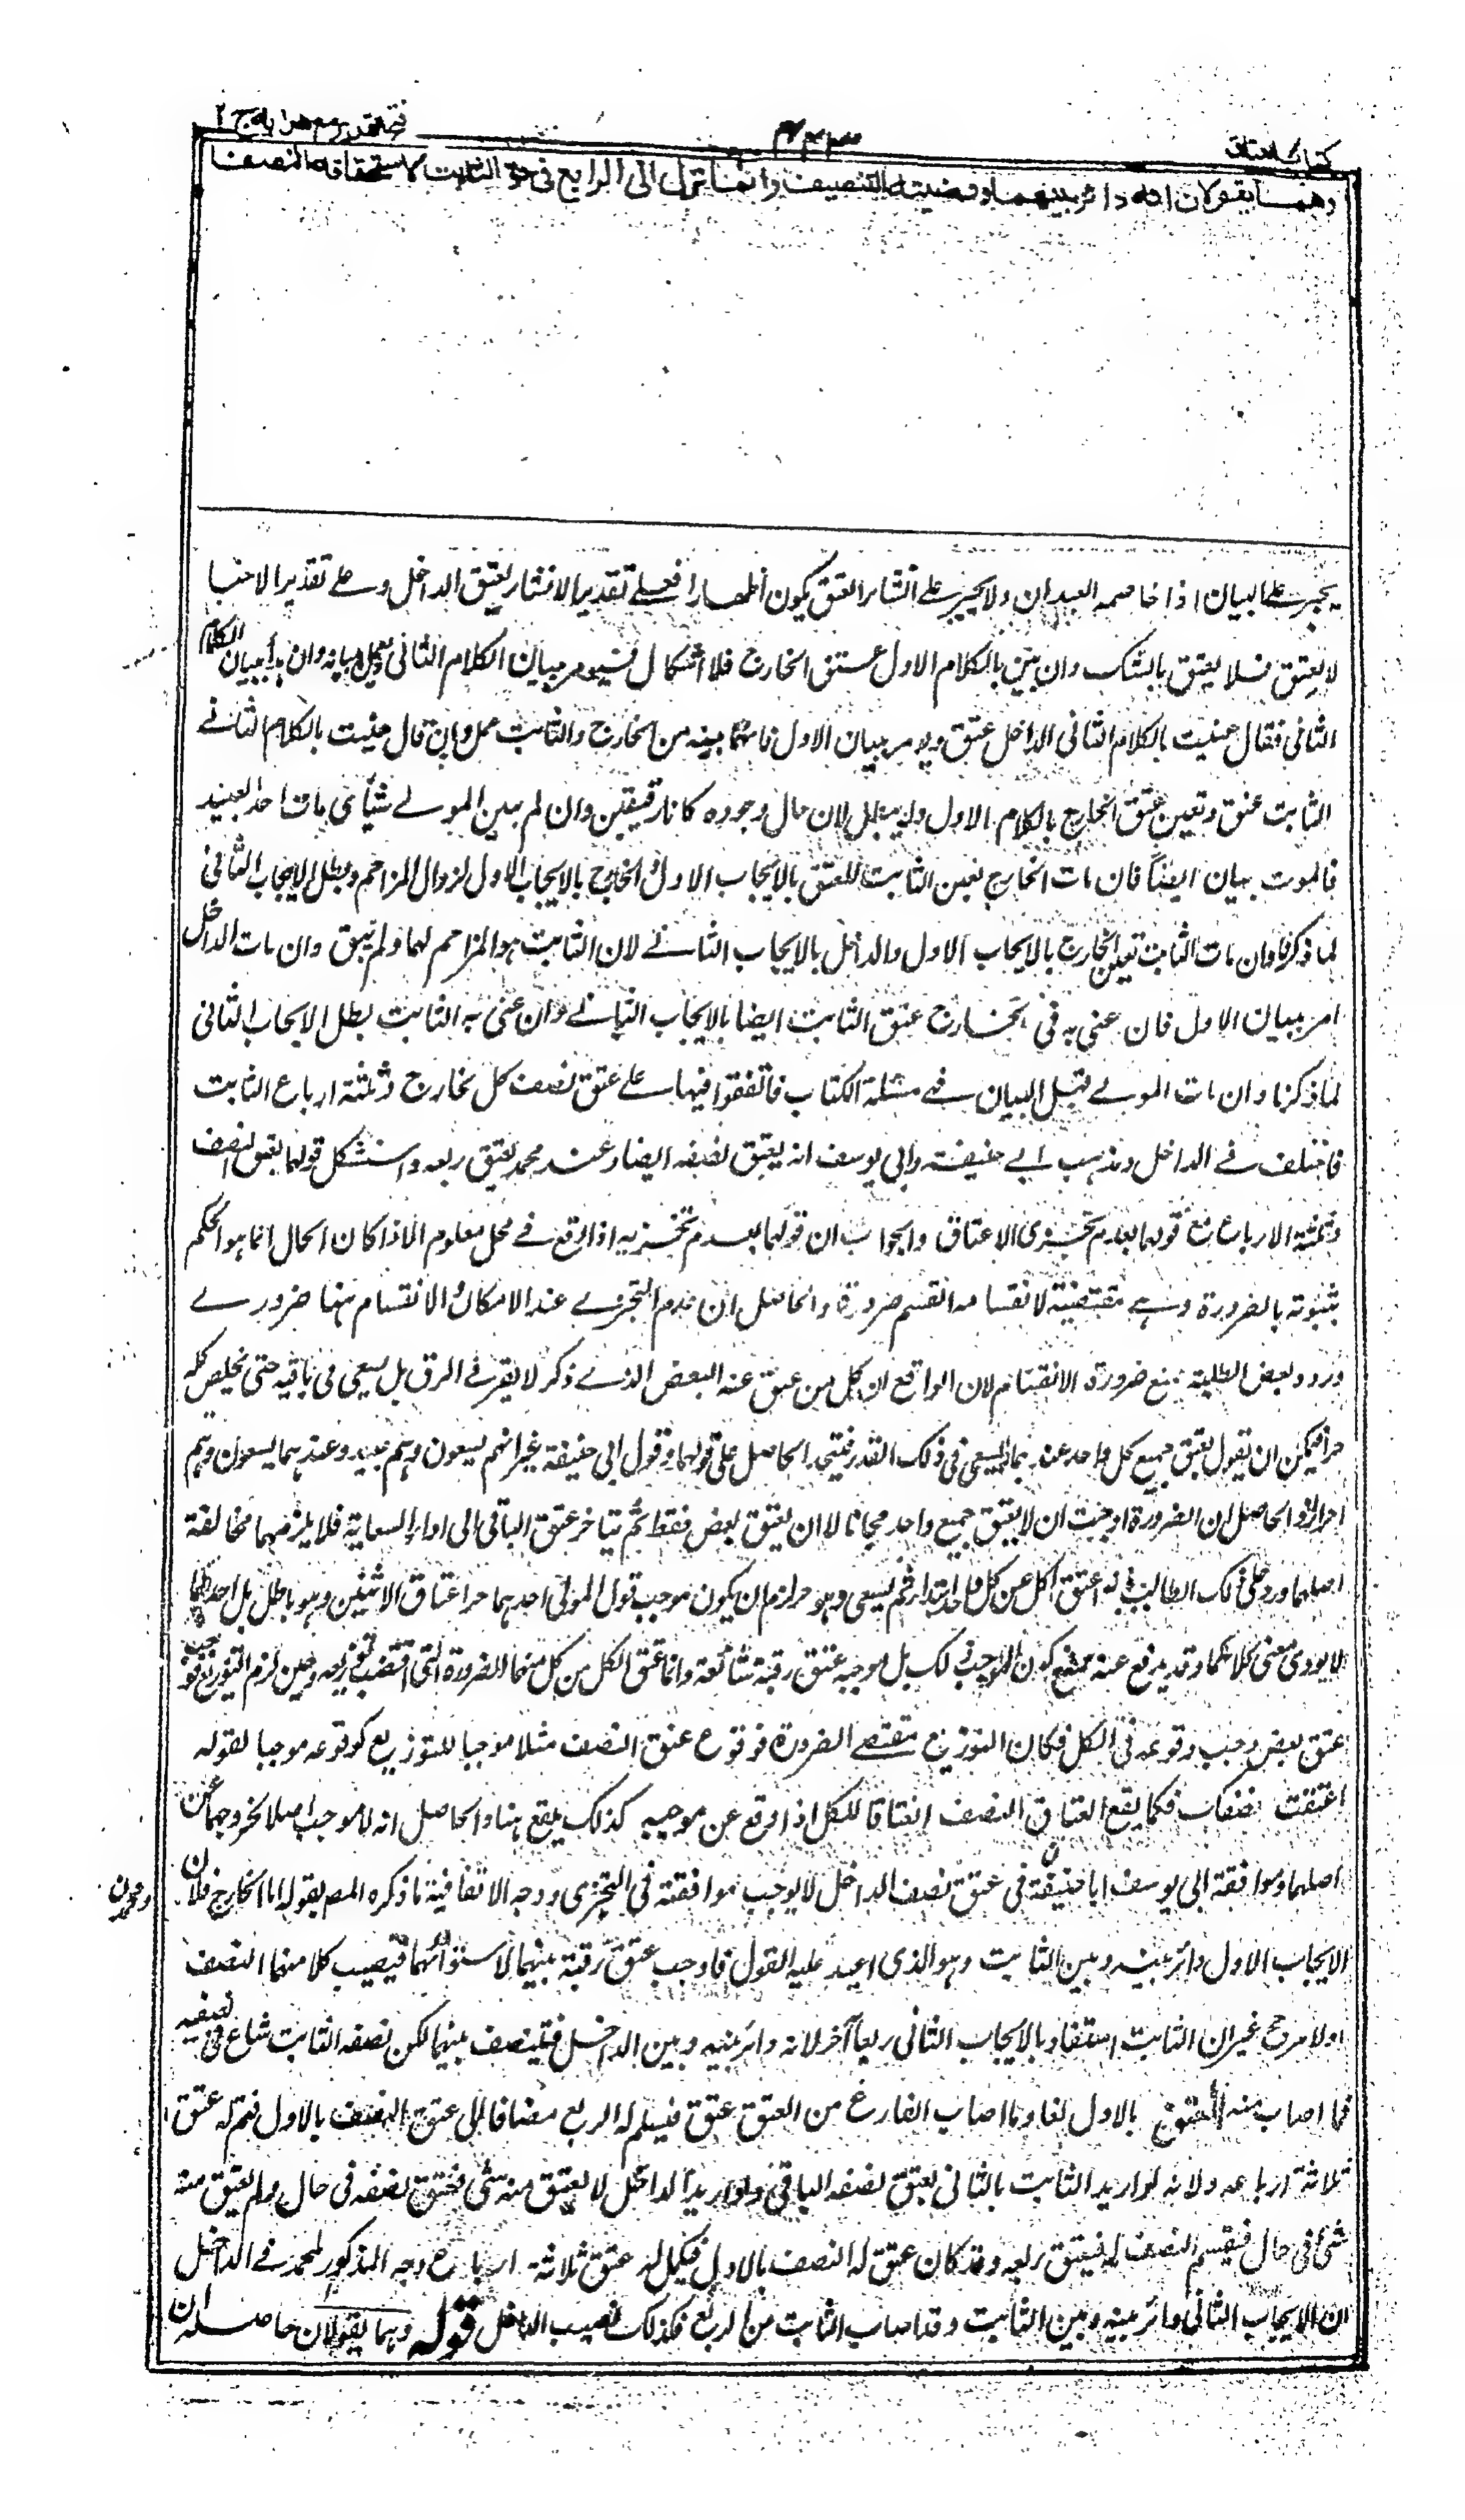 كتاب العتاق
فتح القدير مع هدايه ج ٢
وهما يقولان انه دائر بينهما وقضيته التنصيف وانما نزل الى الربع في حق الثابت لاستحقاقه النصف
يجبر على البيان اذا خاصمه العبدان ولا يجبر على انشاء العتق يكون اظهارا فعلى تقدير الانشاء يعتق الداخل وعلى تقدير الاخبا
لا يعتق فلا يعتق بالشك وان بين بالكلام الاول عتق الخارج فلا اشكال فيومر ببيان الكلام الثاني ويعمل ببيانه وان بدأ ببيان الكلام
الثاني فقال عنيت بالكلام الثاني الداخل عتق ويومر ببيان الاول فايهما بينه من الخارج والثابت عمل وان قال عنيت بالكلام الثاني
الثابت عتق وتعين عتق الخارج بالكلام الاول ولا يبطل لان حال وجوده كانا رقيقين وان لم يبين المولى شيأ حتى مات احد العبيد
فالموت بيان ايضا فان مات الخارج تعين الثابت للعتق بالايجاب الاول والخارج بالايجاب الاول لزوال المزاحم وبطل الايجاب الثاني
لما ذكرنا وان مات الثابت تعين الخارج بالايجاب الاول والداخل بالايجاب الثاني لان الثابت هو المزاحم لهما ولم يبق وان مات الداخل
امر ببيان الاول فان عنى به الخارج عتق الثابت ايضا بالايجاب الثاني وان عنى به الثابت بطل الايجاب الثاني
لما ذكرنا وان مات المولى قبل البيان في مسئلة الكتاب فاتفقوا فيها على عتق نصف كل خارج وثلثة ارباع الثابت
فاختلف في الداخل ومذهب ابي حنيفة وابي يوسف انه يعتق نصفه ايضا وعند محمد يعتق ربعه واستشكل قولهما بعتق النصف
وثلثة الارباع مع قولهما بعدم تجزى الاعتاق والجواب ان قولهما بعدم تجزيه اذا وقع في محل معلوم اما اذا كان الحال انما هو الحكم
بثبوته بالضرورة وهي مقتضية لانقسامه انقسم ضرورة والحاصل ان عدم التجزى عند الامكان والانقسام هنا ضرورى
ورد وبعض الطلبة يمنع ضرورة الانقسام لان الواقع ان كل من عتق عنه البعض الذي ذكر لا يقر في الرق بل يسعى في باقيه حتى يخلص كله
حرا فيمكن ان يقول يعتق جميع كل واحد عندهما ويسعى في ذلك القدر فيتحد الحاصل على قولهما وقول ابي حنيفة غير انهم يسعون وهم عبيد وعندهما يسعون وهم
احرار والحاصل ان الضرورة اوجبت ان لا يعتق جميع واحد مجانا لا ان يعتق بعض فقط ثم يتاخر عتق الباقي الى اداء السعاية فلا يلزمهما مخالفة
اصلهما ورد على ذلك الطالب بانه اعتق الكل عن كل واحد ابتداء ثم يسعى وهو حر لزم ان يكون موجب قول المولى احدهما حر اعتاق الاثنين وهو باطل بل احدكما
لا يودى معنى كلا كما وقد يدفع عنه بمنع كون الموجب ذلك بل موجبه عتق رقبة شائعة وانما عتق الكل من كل منهما للضرورة التي اقتضت توزيعه وحين لزم التوزيع فوجب
عتق بعض وجب وقوعه في الكل فكان التوزيع مقتضى الضرورة فوقوع عتق النصف مثلا موجبا للتوزيع كوقوعه موجبا لقوله
اعتقت نصفك فكما يقع اعتاق النصف اعتاقا للكل اذا وقع عن موجبه كذلك يقع هنا والحاصل انه لا موجب اصلا لخروجهما عن
اصلهما وموافقة ابي يوسف ابا حنيفة في عتق نصف الداخل لا يوجب موافقته في التجزى ووجه الاتفاقية ما ذكره المص بقوله اما الخارج فلان
الايجاب الاول دائر بينه وبين الثابت وهو الذي اعيد عليه القول فاوجب عتق رقبة بينهما لاستوائهما فيصيب كلا منهما النصف
اولا مرجح غير ان الثابت استفاد بالايجاب الثاني ربعا آخر لانه دائر بينه وبين الداخل فيتنصف بينهما لكن نصف الثابت شاع في نصفيه
فما اصاب منه المعتوق بالاول لغا وما اصاب الفارغ من العتق عتق فيسلم له الربع مضافا الى عتق النصف بالاول فتم له عتق
ثلاثة ارباعه ولانه لو اريد الثابت بالثاني يعتق نصفه الباقي ولو اريد الداخل لا يعتق منه شئ فعتق نصفه في حال ولم يعتق منه
شئ في حال فيقسم النصف له فيعتق ربعه وقد كان عتق له النصف بالاول فيكمل له عتق ثلاثة ارباع وجه المذكور لمحمد في الداخل
ان الايجاب الثاني دائر بينه وبين الثابت وقد اصاب الثابت من الربع فكذلك نصيب الداخل قوله وهما يقولان حاصله ان